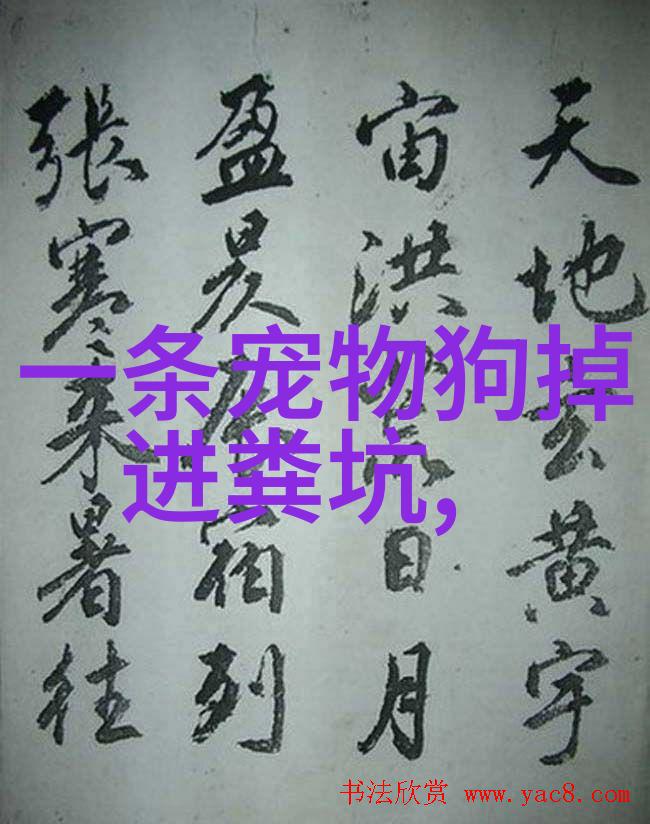 天地玄黄宇
宙洪荒日月
盈昃辰宿列
張寒来暑往
一条宠物狗掉
进粪坑,
书法欣赏 www.yac8.com